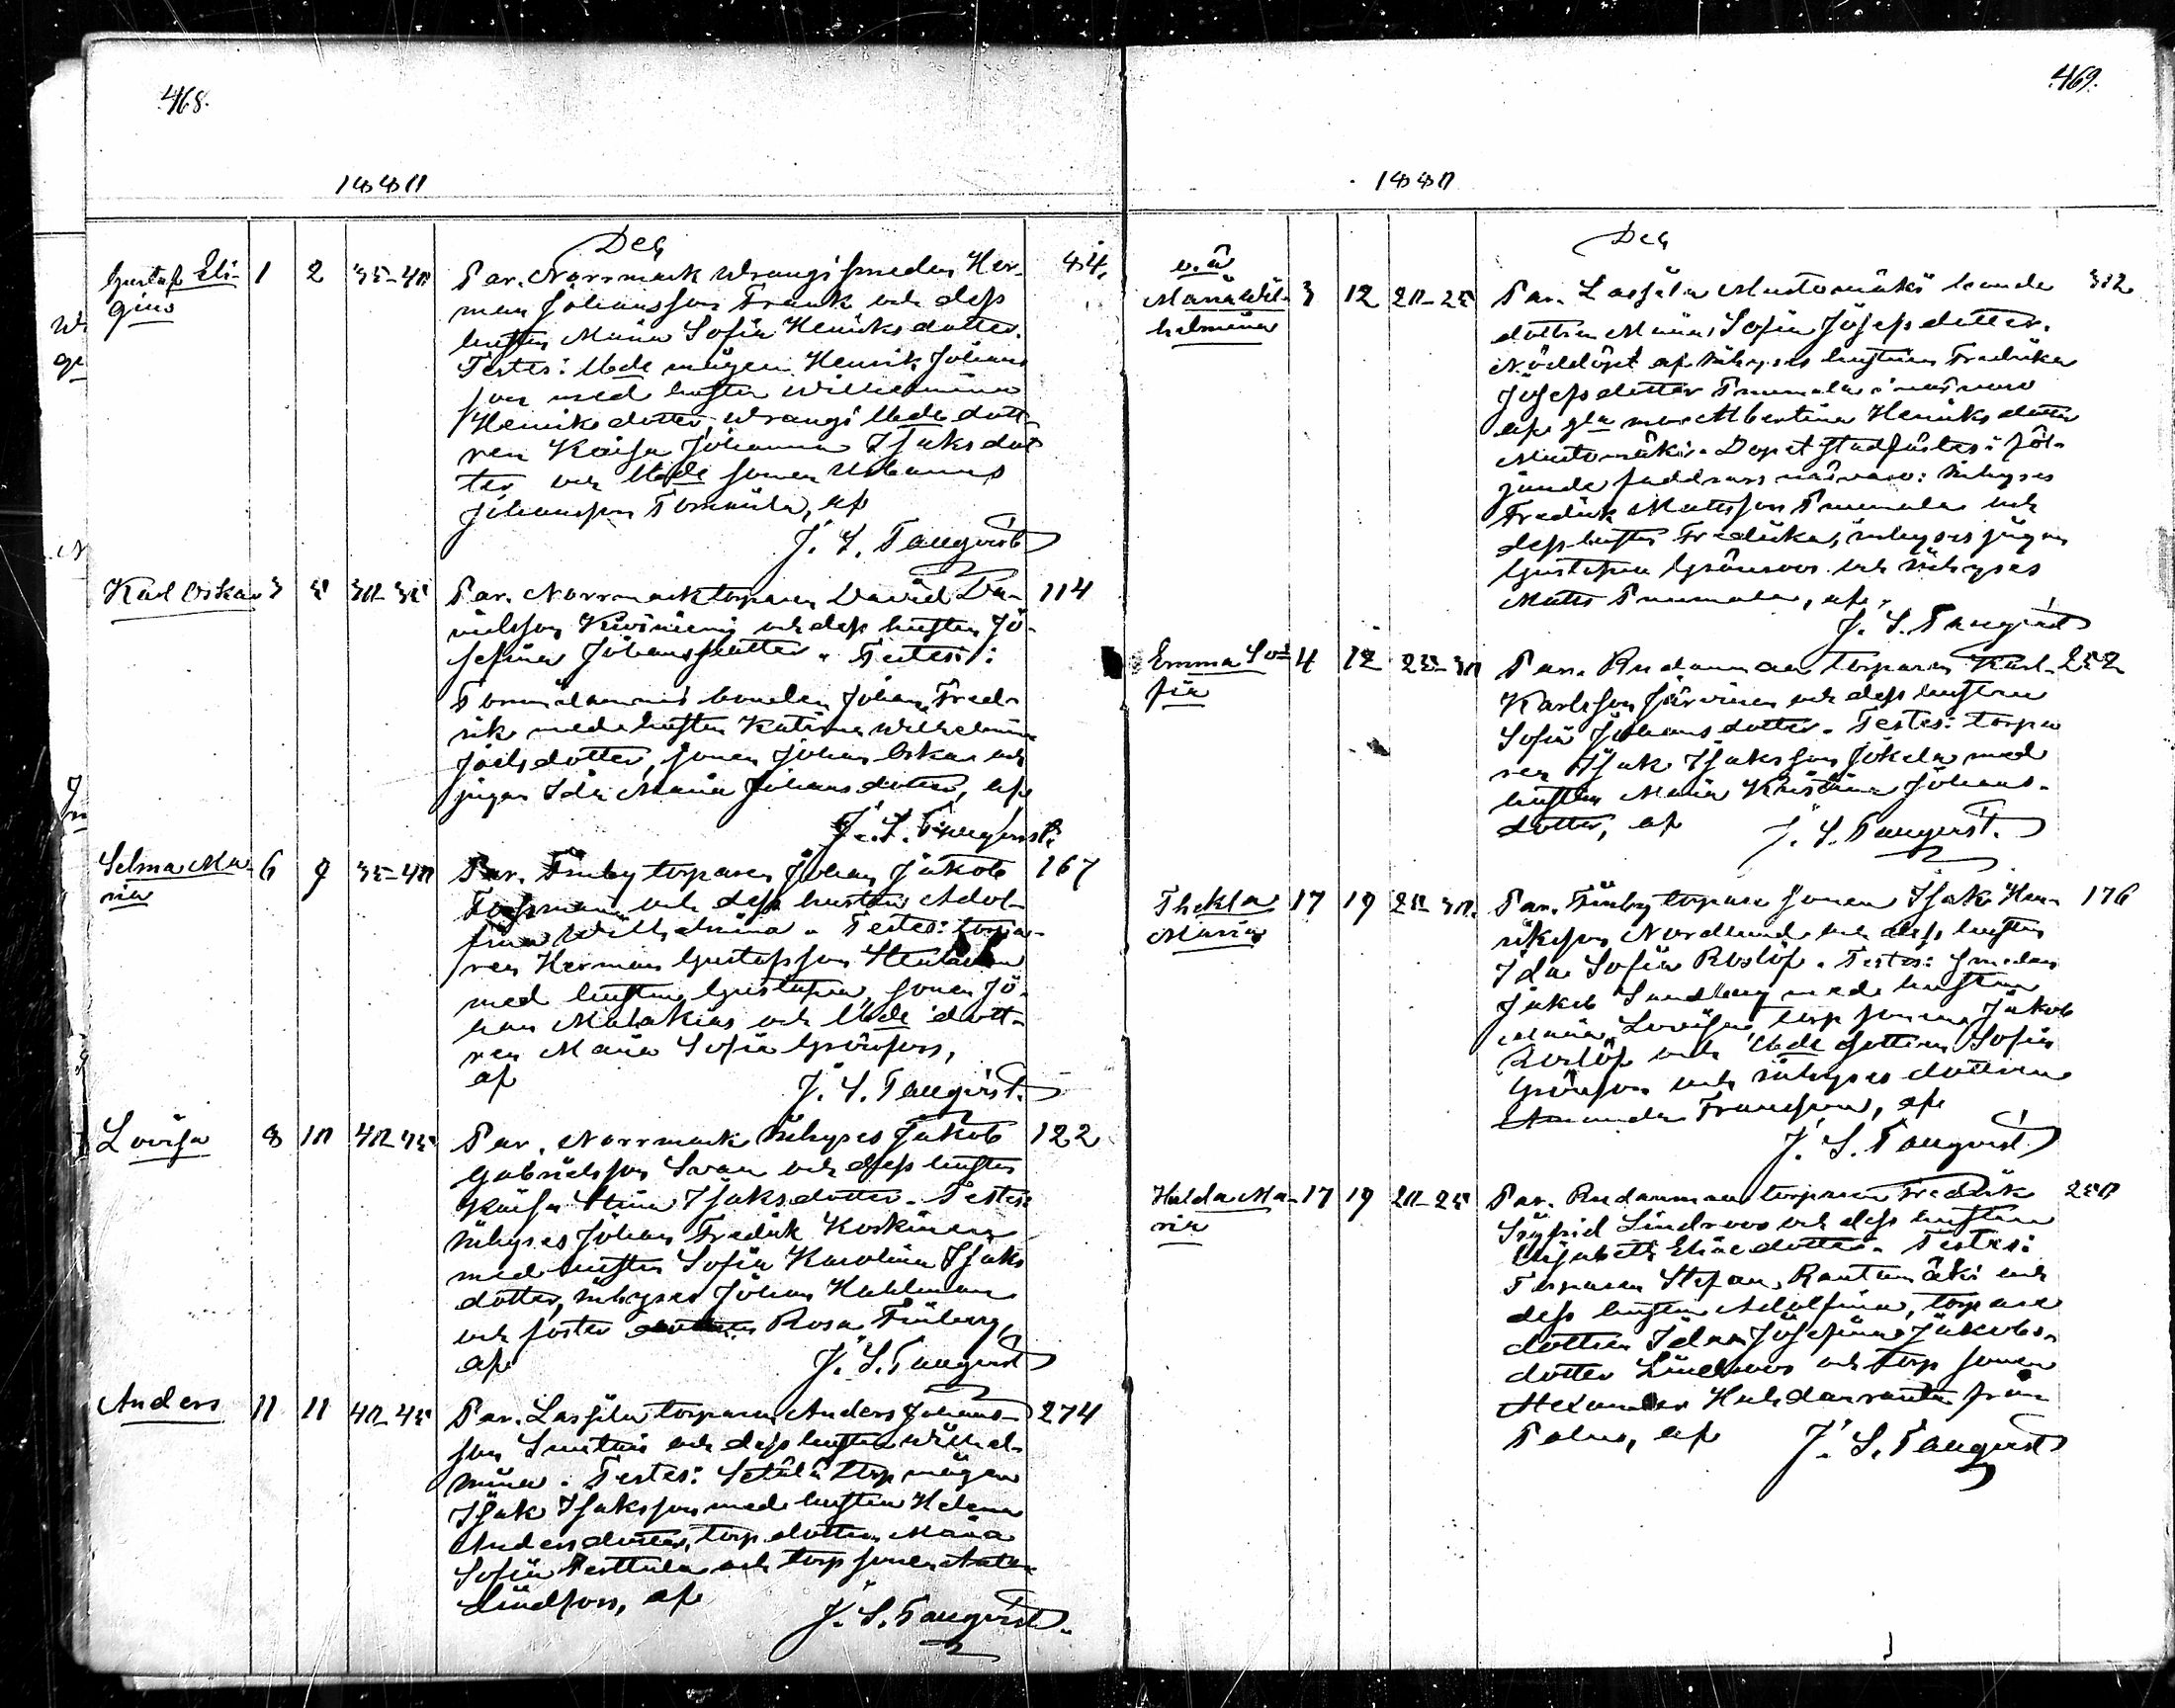 468.
1880
Dec
Gustaf Eli-
gius
1 2 35-40
Par. Norrmark Wrangi smeden Her-
man Johansson Frank och dess
hustru Maria Sofia Henriksdotter.
Testes: Ibde mågen Henrik Johans
son med hustru Wilhelmina
Henriksdotter, Wrangi Ibde dott-
ren Kaisa Johanna Isaksdot
ter och Ibde sonen
Johansson Tommila, af
J. S. Tanqvist
44.
Karl Oskar 3 5 30-35
Par. Norrmark torparen David Da-
nielsson Kiviniemi och dess hustru Jo-
sefina Johansdotter. Testes:
bonden Johan Fred-
rik med hustru Katrina Wilhelmina
Joelsdotter, sonen Johan Oskar och
pigan Ida Maria Johansdotter, af
J. S. Tanqvist.
114
Selma Ma-
ria
6 9 35-40
Par. Finby torparen Johan Jakob
Forsman och dess hustru Adol-
fina Wilhelmina. Testes: torpa-
ren Herman Gustafsson
med hustru Gustafva, sonen Jo-
han Malakias och Ibde dott-
ren Maria Sofia Grönfors,
af
J. S. Tanqvist.
167
Lovisa 8 10 40-45
Par. Norrmark inhyses Jakob
Gabrielsson Svan och dess hustru
Kaisa Stina Isaksdotter. Testes:
inhyses Johan Fredrik Koskinen
med hustru Sofia Karolina Isaks
dotter, inhyses Johan Kuhlman
och foster Rosa Finberg,
af
J. S. Tanqvist
122
Anders 11 11 40-45
Par. Lassila torparen Anders Johans-
son och dess hustru Wilhel-
mina. Testes: Setälä torp mågen
Isak Isaksson med hustru Helena
Andersdotter, torp dottren Maria
Sofia Perttula och torp sonen
Lindfors, af
J. S. Tanqvist.
274
469.
1880
Dec
o.ä
Maria Wil-
helmina
3 12 20-25
Par. Lassila Mustomäki bonde
dottren Maria Sofia Josefsdotter.
Nöddöpt af inhyses hustrun Fredrika
Josefsdotter i närvaro
af gla mor Albertina Henriksdotter
Mustomäki. Dopet stadfästes i föl-
jande faddrars närvaro: inhyses
Fredrik Mattsson och
dess hustru Fredrika, inhyses pigan
Gustafva Grönroos och inhyses
Matts, af
J. S. Tanqvist
312
Emma So-
fia
4 12 25-30
Par. Rudanmaa torparen Karl
Karlsson Järvinen och dess hustru
Sofia Johansdotter. Testes: torpa
ren Isak Isaksson Jokela med
hustru Maria Kristina Johans-
dotter, af
J. S. Tanqvist.
252
Thekla
Maria
17 19 25-30.
Par. Finby torpare sonen Isak Hen-
riksson Nordlund och dess hustru
Ida Sofia Roslöf. Testes: smeden
Jakob Sundberg med hustru
Maria Lovisa, torp sonen Jakob
Roslöf och Ibde dottren Sofia
Grönfors och inhyses dottren
Amanda Fransson, af
J. S. Tanqvist
176
Hulda Ma-
ria
17 19 20-25
Par. Rudanmaa torparen Fredrik
Sigfrid Lindroos och dess hustru
Elisabeth Eliaedotter. Testes:
Torparen Stefan Rantamäki och
dess hustru Adolfina, torpare
dottren Ida Josefina Jakobs-
dotter Lindroos och torp sonen
Alexander Huhdanranta från
Palus, af
J. S. Tanqvist
250